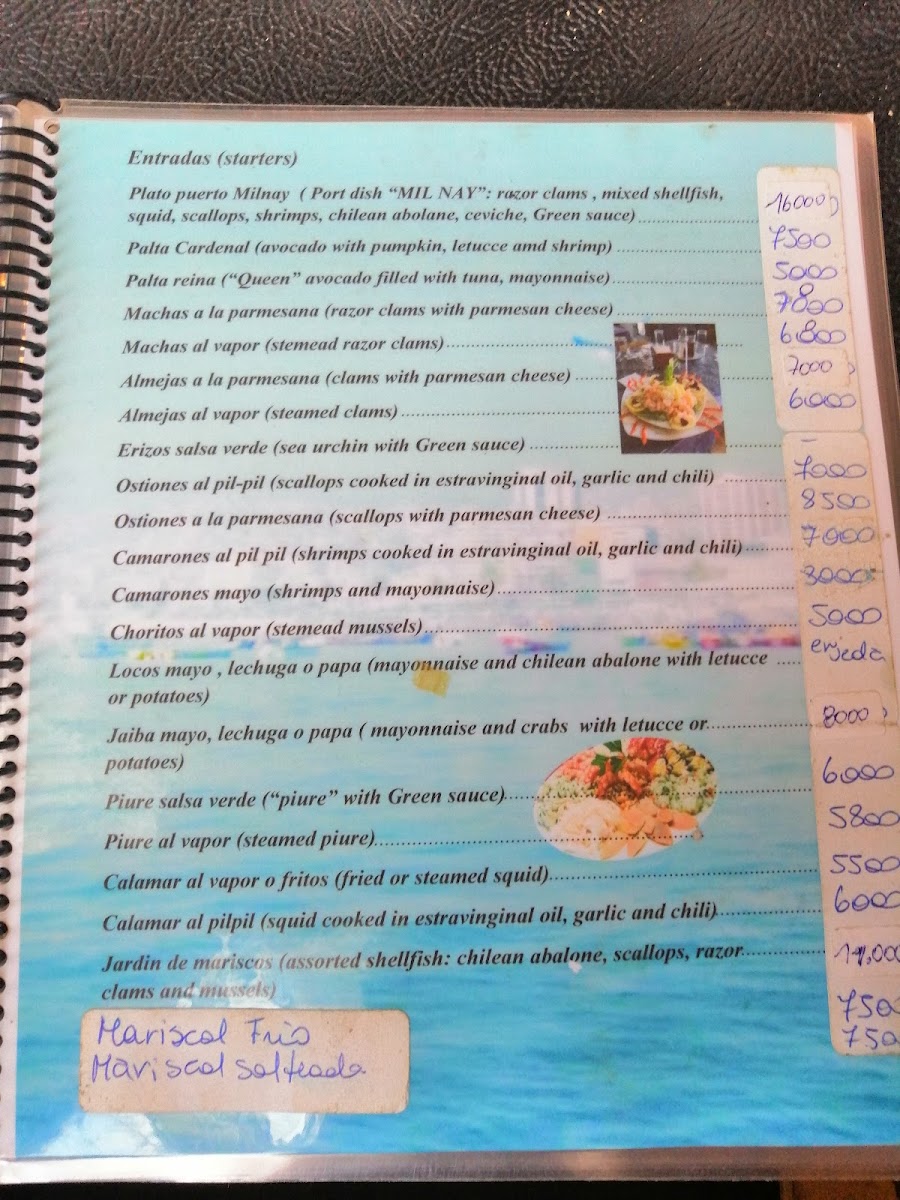 Entradas (starters)
Plato puerto Milnay ( Port dish “MIL NAY”: razor clams , mixed shellfish,
squid, scallops, shrimps, chilean abolane, ceviche, Green sauce) 16000
Palta Cardenal (avocado with pumpkin, letucce amd shrimp) 7500
Palta reina (“Queen” avocado filled with tuna, mayonnaise) 5000
Machas a la parmesana (razor clams with parmesan cheese) 7800
Machas al vapor (stemead razor clams) 6800
Almejas a la parmesana (clams with parmesan cheese) 7000
Almejas al vapor (steamed clams) 6000
Erizos salsa verde (sea urchin with Green sauce) -
Ostiones al pil-pil (scallops cooked in estravinginal oil, garlic and chili) 7000
Ostiones a la parmesana (scallops with parmesan cheese) 8500
Camarones al pil pil (shrimps cooked in estravinginal oil, garlic and chili) 7000
Camarones mayo (shrimps and mayonnaise) 3000
Choritos al vapor (stemead mussels) 5000
Locos mayo , lechuga o papa (mayonnaise and chilean abalone with letucce
or potatoes)
Jaiba mayo, lechuga o papa ( mayonnaise and crabs with letucce or 8000
potatoes)
Piure salsa verde (“piure” with Green sauce) 6000
Piure al vapor (steamed piure) 5800
Calamar al vapor o fritos (fried or steamed squid) 5500
Calamar al pilpil (squid cooked in estravinginal oil, garlic and chili) 6000
Jardin de mariscos (assorted shellfish: chilean abalone, scallops, razor
clams and mussels)
Mariscal Frio 750
Mariscal salteado 750